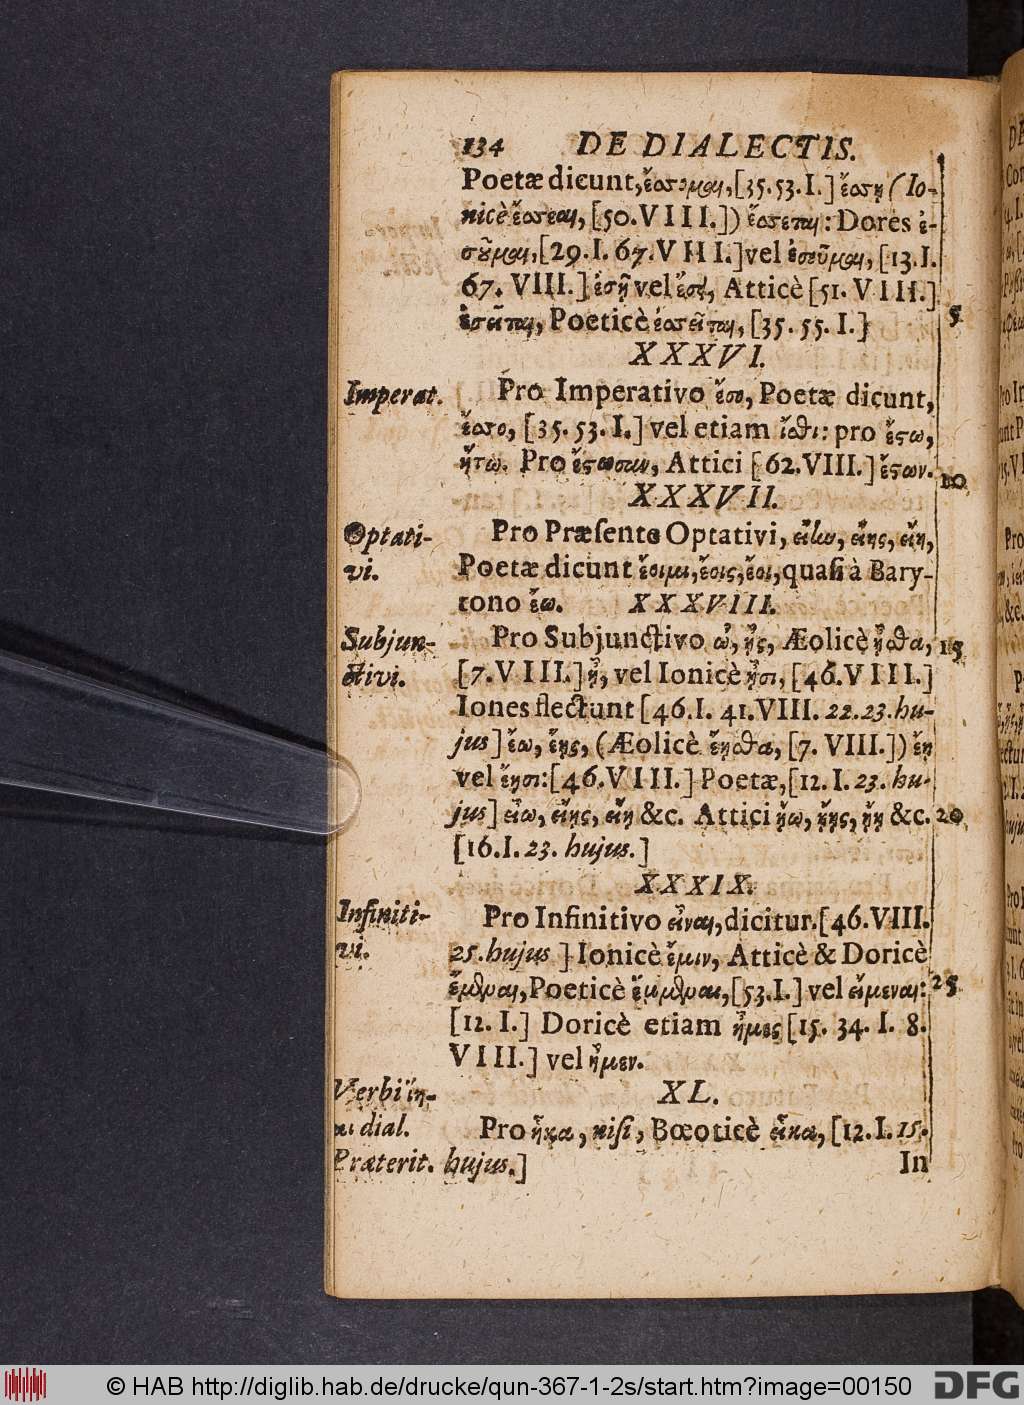 134 DE DIALECTIS.
Poetæ dicunt, ἔσσομαι, [35. 53. I.] ἔσσῃ (Io-
nicè ἔσσεαι, [50. VIII.]) ἔσσεται: Dores ἐ-
σοῦμαι, [29. I. 67. VIII.] vel ἐσεῦμαι, [13. I.
67. VIII.] ἐσῇ vel Atticè [51. VIII.]
ἐσεῖται, Poeticè ἐσσεῖται, [35. 55. I.] 5
XXXVI.
Imperat. Pro Imperativo ἔσο, Poetæ dicunt,
ἔσσο, [35. 53. I.] vel etiam ἴσθι: pro ἔστω,
ἤτω. Pro ἔστωσαν, Attici [62. VIII.] ἔστων. 10
XXXVII.
Optati- Pro Præsente Optativi, εἴην, εἴης, εἴη,
vi. Poetæ dicunt ἔοιμι, ἔοις, ἔοι, quasi à Bary-
tono ἔω. XXXVIII.
Subjun- Pro Subjunctivo ὦ, ᾖς, Æolicè ᾖσθα, 15
ctivi. [7. VIII.] ᾖ, vel Ionicè ᾖσι, [46. VIII.]
Iones flectunt [46. I. 41. VIII. 22. 23. hu-
jus] ἔω, ἔῃς, (Æolicè ἔῃσθα, [7. VIII.]) ἔῃ
vel ἔῃσι: [46. VIII.] Poetæ, [12. I. 23. hu-
jus] εἴω, εἴῃς, εἴῃ &c. Attici ᾔω, ᾔῃς, ᾔῃ &c. 20
[16. I. 23. hujus.]
XXXIX.
Infiniti- Pro Infinitivo εἶναι, dicitur [46. VIII.
vi. 25. hujus] Ionicè ἔμεν, Atticè & Doricè
ἔμεναι, Poeticè ἔμμεναι, [53. I.] vel εἴμεναι: 25
[12. I.] Doricè etiam ἦμες [15. 34. I. 8.
VIII.] vel ἦμεν.
Verbi ἵη- XL.
μι dial. Pro ἧκα, misi, Bœoticè εἷκα, [12. I. 15.
Præterit. hujus.] In
© HAB http://diglib.hab.de/drucke/qun-367-1-2s/start.htm?image=00150 DFG